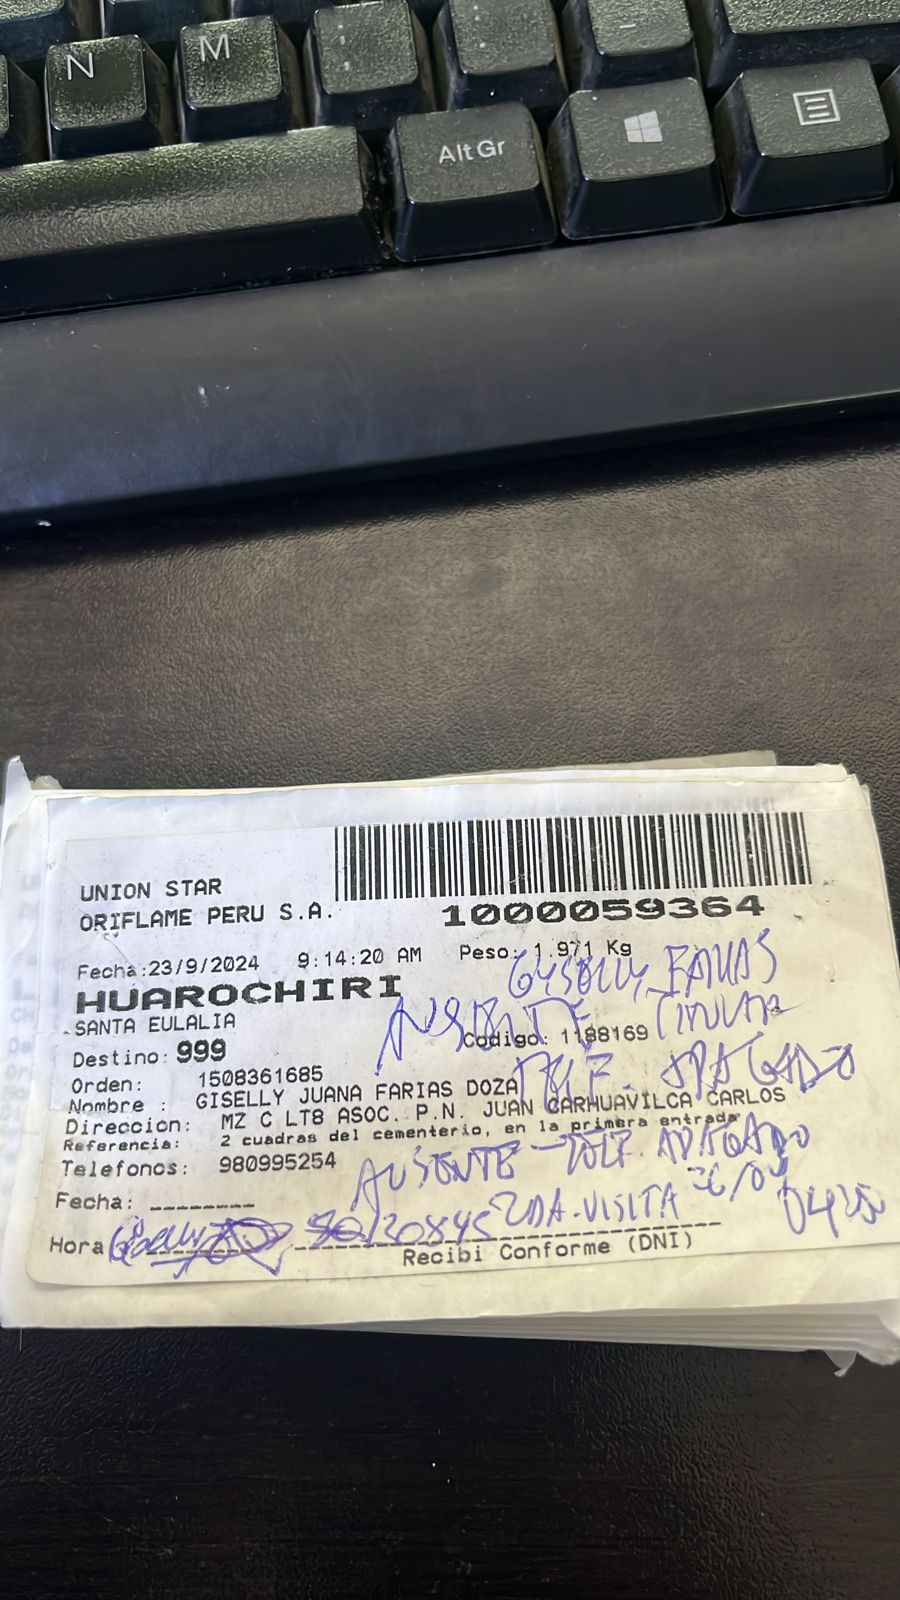 N
M
Alt Gr
UNION STAR
ORIFLAME PERU S.A.
1000059364
Fecha:23/9/2024 9:14:20 AM Peso: 1.971 Kg
HUAROCHIRI
SANTA EULALIA
Codigo: 1188169
Destino: 999
Orden: 1508361685
Nombre : GISELLY JUANA FARIAS DOZA
Direccion: MZ C LT8 ASOC. P.N. JUAN CARHUAVILCA CARLOS
Referencia: 2 cuadras del cementerio, en la primera entrada
Telefonos: 980995254
Fecha: ________
Hora
Recibi Conforme (DNI)
GYSELLY FARIAS
TITULAR
AUSENTE
TELF. APAGADO
AUSENTE - TELF. APAGADO
2DA. VISITA